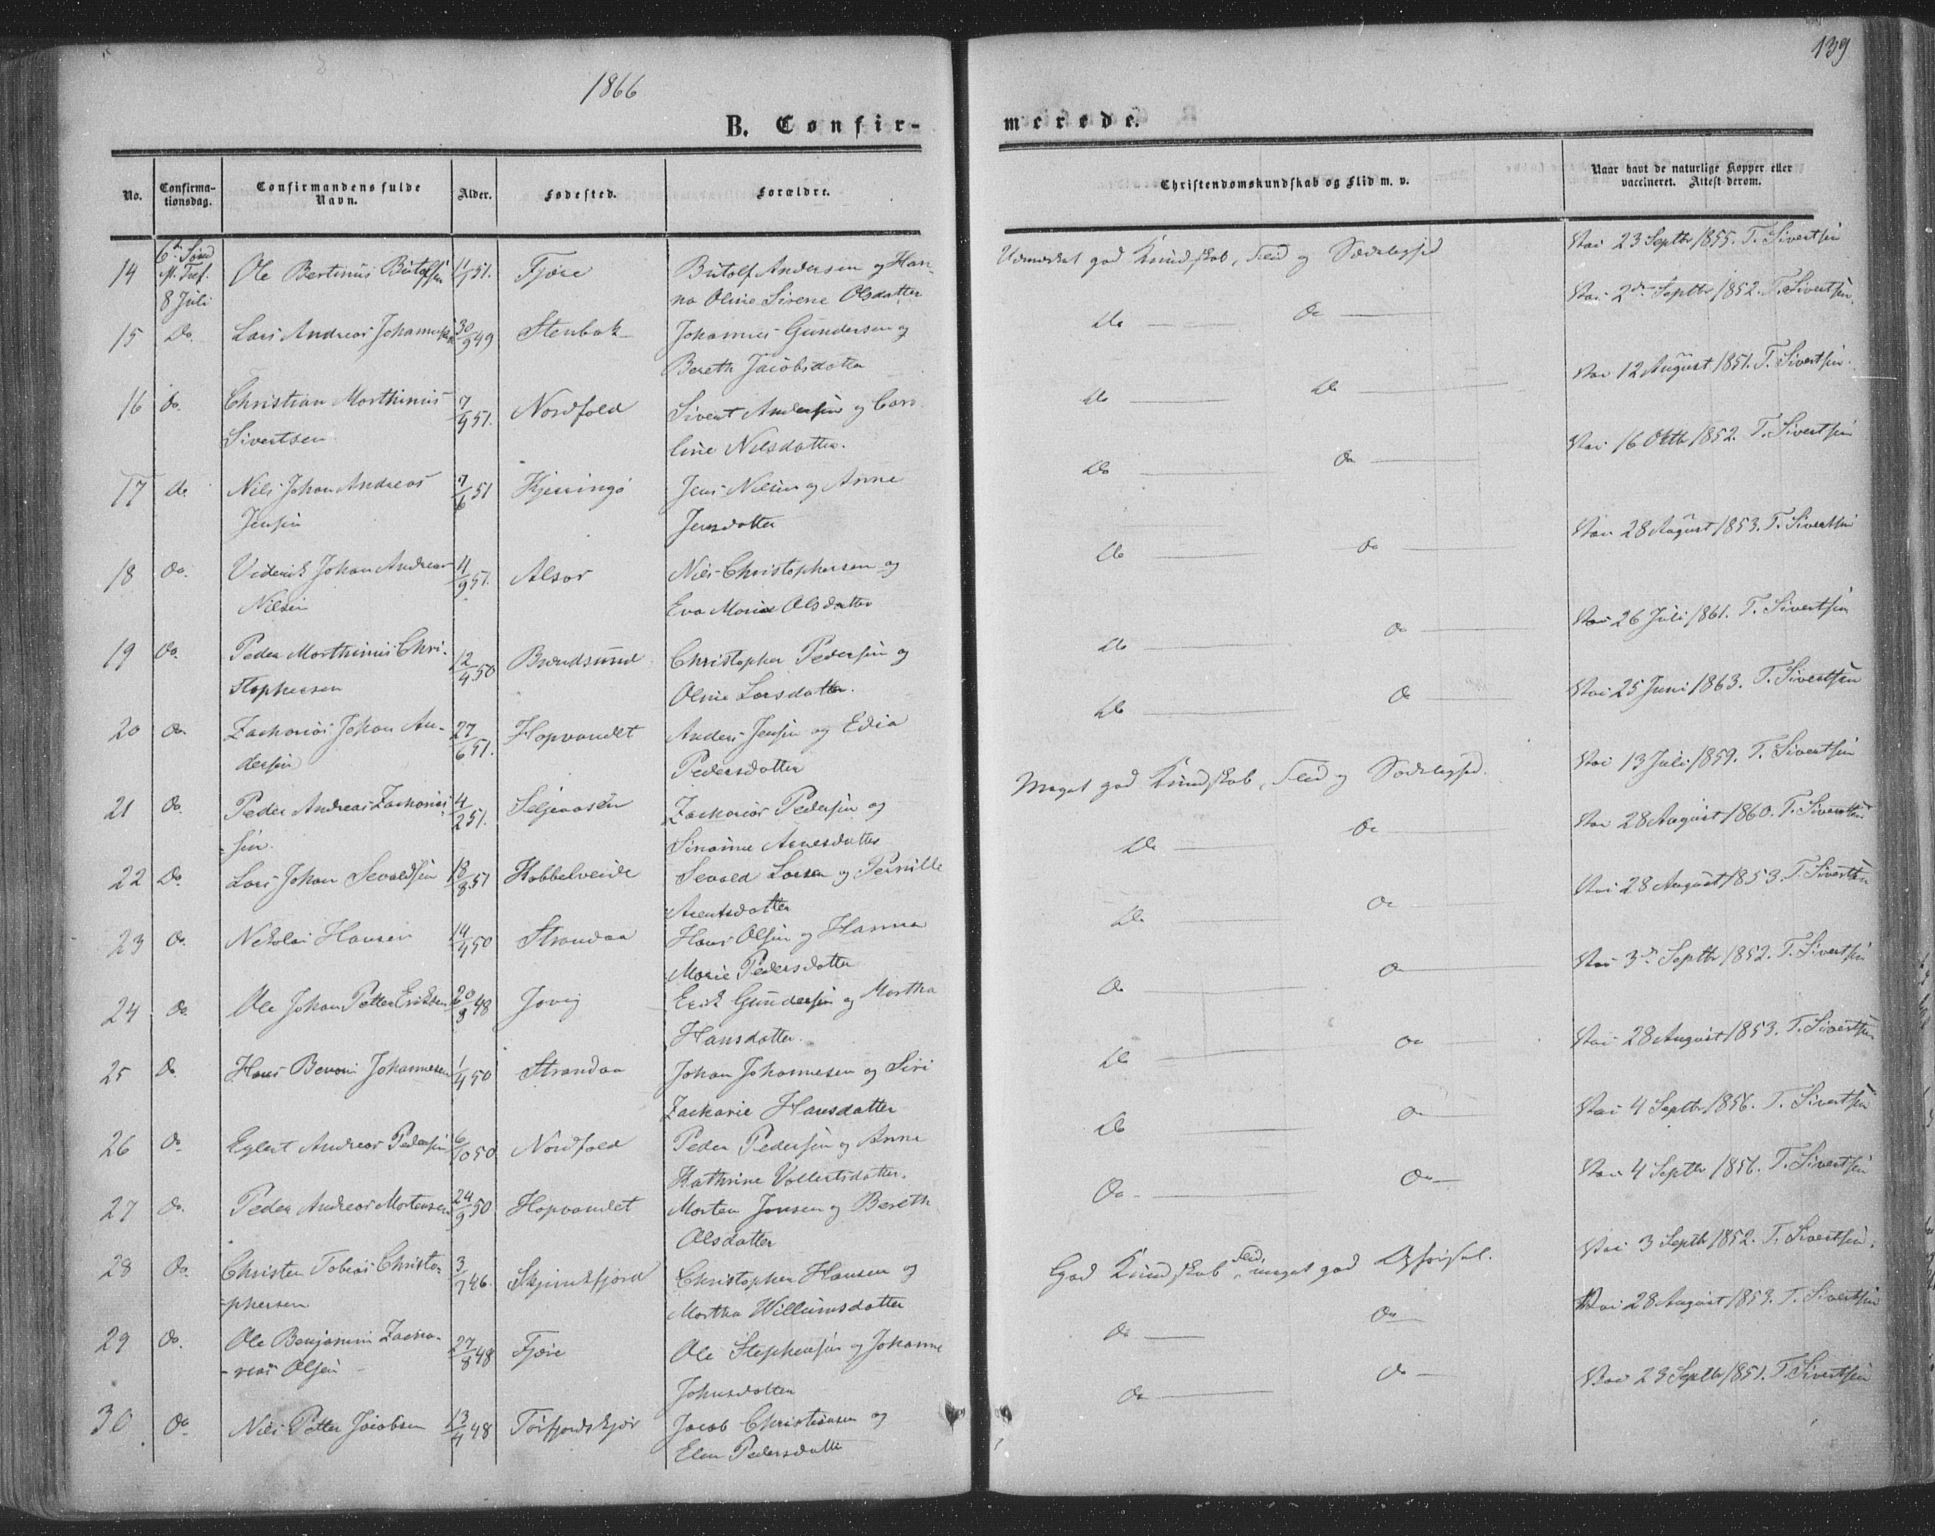 1866
139
B. Confir-
merede.
No.
Confirma-
tionsdag.
Confirmandens fulde
Navn.
Alder.
Fødested.
Forældre.
Christendomskundskab og Flid m. v.
Naar havt de naturlige Kopper eller
vaccineret. Attest derom.
14 8 Juli Ole Bertinus 51. Fjære Butolf Andersen og Han-
na Oline Sirene Olsdatter
15 Do. Lars Andreas Johannessen 30/9 49 Stenbak Johannes Gundersen og
Bereth Jacobsdatter
16 Do. Christian Marthinus 7/9 51. Nordfold Sivert Andersen og Caro-
Sivertsen line Nilsdatter.
17 do Nils Johan Andreas 7/6 51 Kjerringø Jens Nilsen og Anne
Jensen Jensdatter
18 Do. Johan Andreas 11/9 51. Alsør Nils Christophersen og
Nilsen Eva Maria Olsdatter
19 Do. Peder Marthinus Chri- 12/4 50 Brændsund Christopher Pedersen og
stophersen Oline Larsdatter.
20 Do. Zacharias Johan An- 27/6 51. Hopvandet Anders Jensen og Edia
dersen Pedersdatter
21 Do. Peder Andreas Zacharias- 4/2 51. Seljeaasen Zacharias Pedersen og
sen. Arnesdatter
22 Do. Lars Johan Sevaldsen 18/8 51 Kobbelveide Sevald Larsen og Pernille
Arentsdatter
23 Do. Nikolai Hansen 50 Strandaa Hans Olsen og Hanna
Marie Pedersdatter
24 Do. Ole Johan Petter Eriksen 48 Jovig Erik Gundersen og Martha
Hansdatter.
25 Do. Hans Benoni Johannesen 1/4 50 Strandaa Johan Johannesen og Siri
Zacharie Hansdatter
26 Do. Eglert Andreas Pedersen 6/10 50 Nordfold Peder Pedersen og Anne
Kathrine Vollertsdatter.
27 Do. Peder Andreas Mortensen 24/9 50 Hopvandet Morten Jensen og Bereth
Olsdatter
28 Do. Christen Tobias Christo- 3/7 46. Skjelmstfjord Christopher Hansen og
phersen Martha Willumsdatter
29 Do. Ole Benjamin Zacha- 27/8 48 Fjære Ole Stephensen og Johanne
rias Olsen Johnsdatter
30. Do Nils Petter Jacobsen 13/4 48 Tørfjordskjær Jacob Christiansen og
Elen Pedersdatter
Udmærket god Kundskab, Flid og Sædelighed Vac. 23 Septbr 1855. T. Sivertsen
Do Do Vac. 2den Septbr 1852. T. Sivertsen.
Do Do Vac 12 August 1851. T. Sivertsen.
Do Do Vac 16 Oktbr 1852. T. Sivertsen
Do Do Vac 28 August 1853. T. Sivertsen
Do Do Vac 26 Juli 1861. T. Sivertsen
Do Do Vac 25 Juni 1863. T. Sivertsen
Meget god Kundskab, Flid og Sædelighed. Vac 13 Juli 1859. T. Sivertsen
Do Do Vac 28 August 1860. T. Sivertsen
Do Do Vac 28 August 1853. T. Sivertsen
Do Do Vac 3die Septbr 1852. T. Sivertsen
Do Do Vac 28 August 1853. T. Sivertsen
Do Do Vac 4 Septbr 1856. T. Sivertsen
Do Do Vac 4 Septbr 1856. T. Sivertsen
God Kundskab, Flid, meget god Opførsel. Vac 3 Septbr 1852. T. Sivertsen.
Do Do Vac 28 August 1853. T. Sivertsen
Do Do Vac 23 Septbr 1851. T. Sivertsen